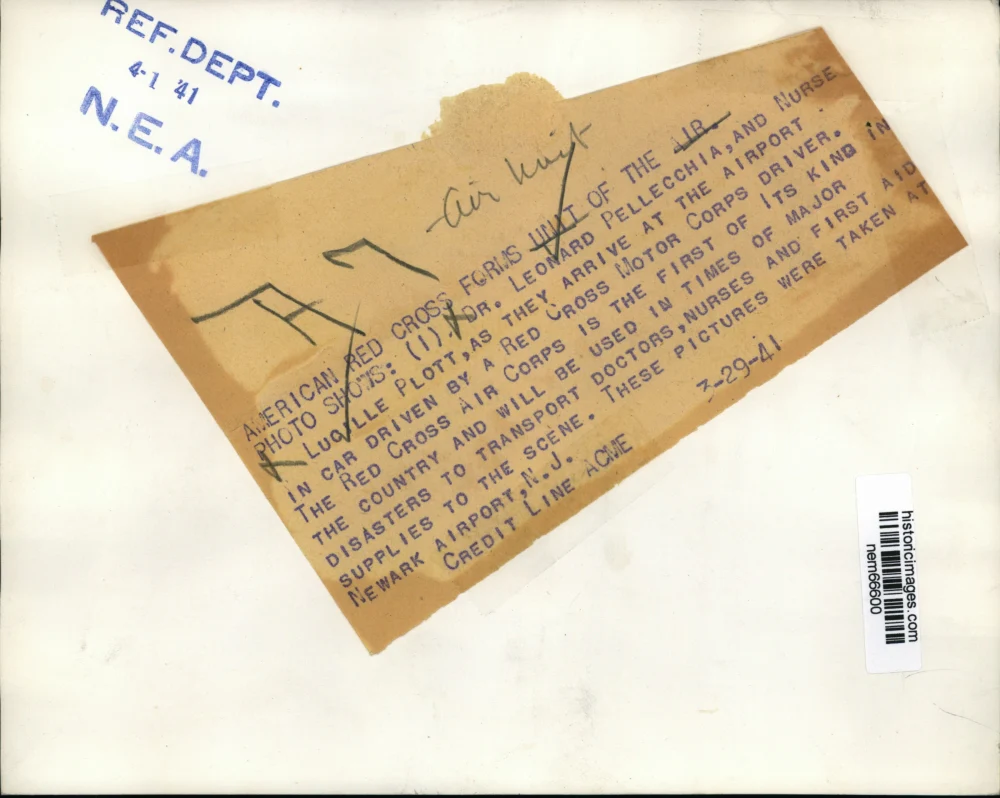 REF. DEPT.
4-1 '41
N. E. A.
Air Unit
A 7
AMERICAN RED CROSS FORMS UNIT OF THE AIR.
PHOTO SHOWS: (1) DR. LEONARD PELLECCHIA, AND NURSE
LUCILLE PLOTT, AS THEY ARRIVE AT THE AIRPORT
IN CAR DRIVEN BY A RED CROSS MOTOR CORPS DRIVER.
THE RED CROSS AIR CORPS IS THE FIRST OF ITS KIND IN
THE COUNTRY AND WILL BE USED IN TIMES OF MAJOR
DISASTERS TO TRANSPORT DOCTORS, NURSES AND FIRST AID
SUPPLIES TO THE SCENE. THESE PICTURES WERE TAKEN AT
NEWARK AIRPORT, N. J.
CREDIT LINE ACME
3-29-41
historicimages.com
nem66600